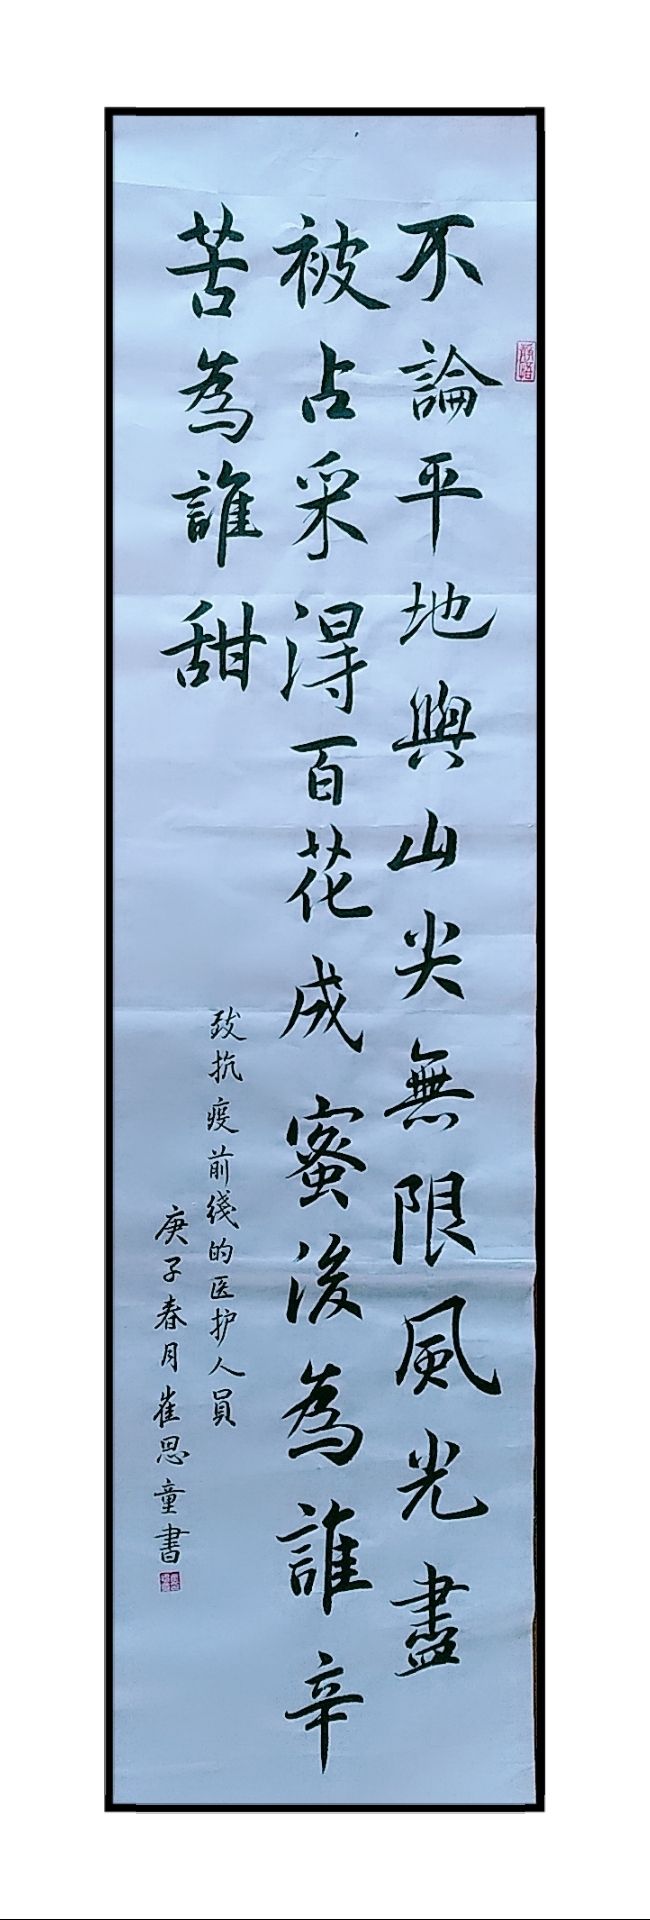 不論平地與山尖無限風光盡
被占采得百花成蜜後為誰辛
苦為誰甜
致抗疫前綫的医护人員
庚子春月崔思童書